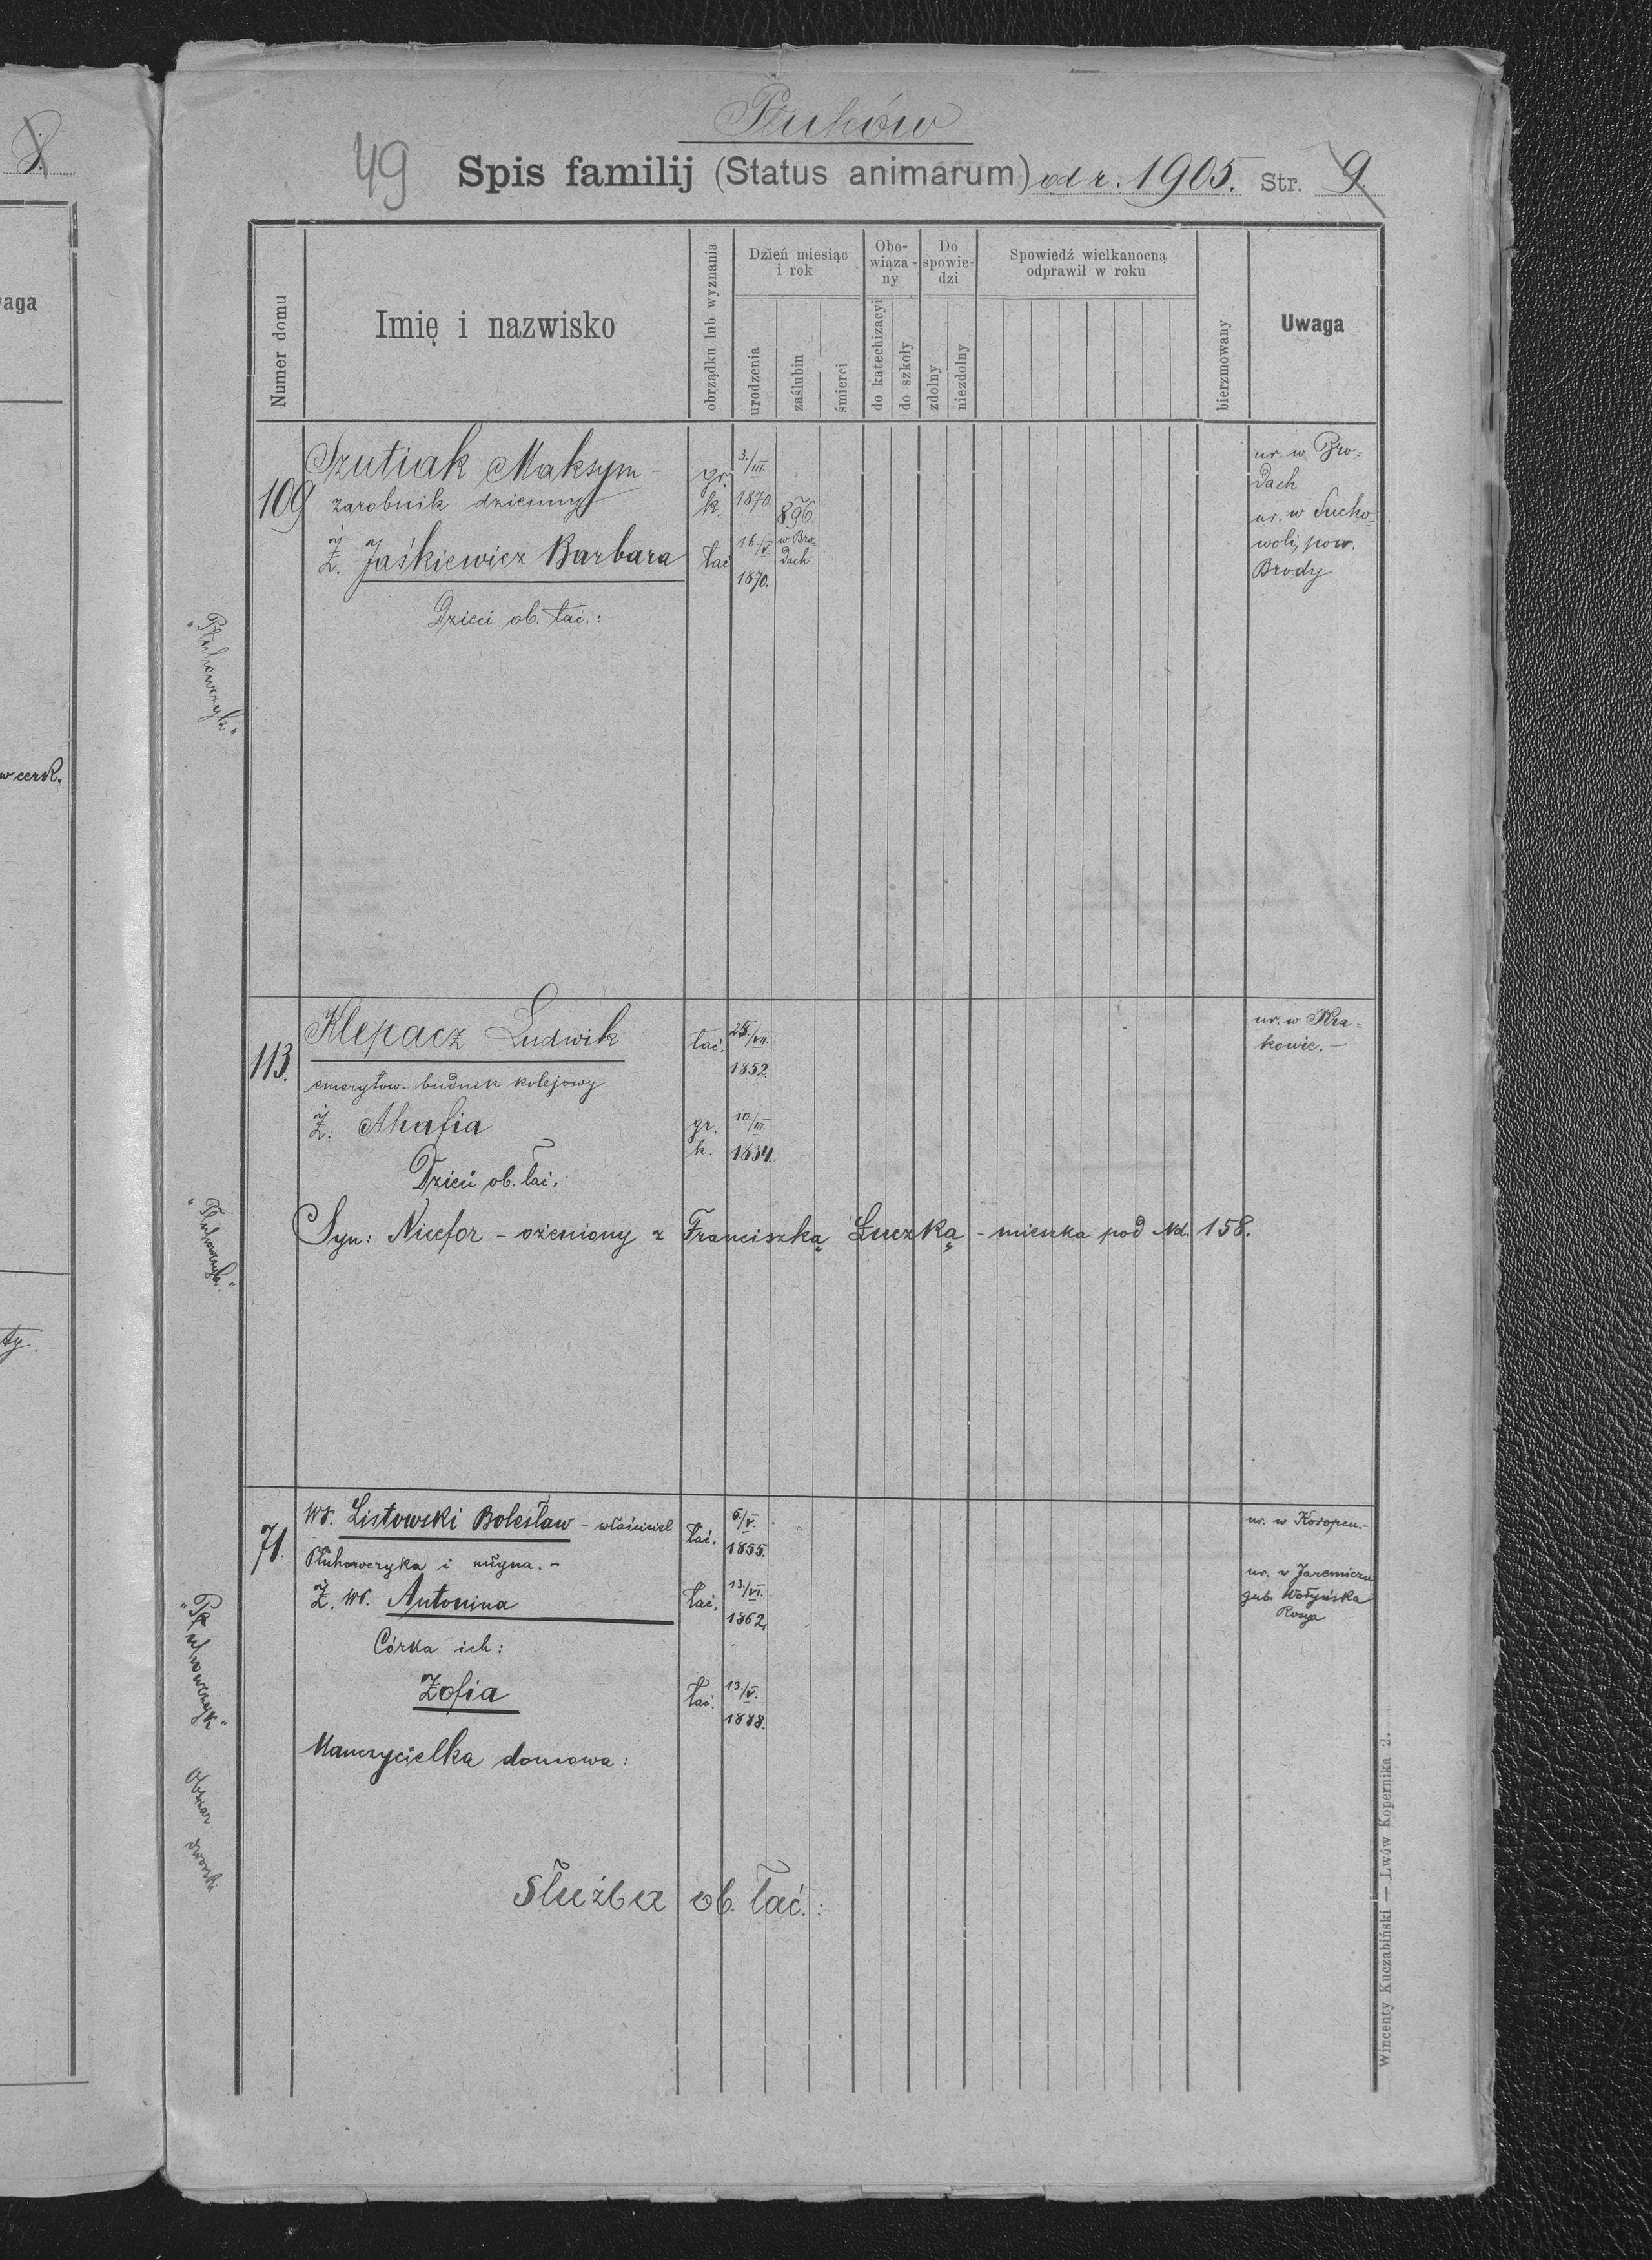 8.
waga
w cerk.
ty.
Płuhów
49 Spis familij (Status animarum) od r. 1905. Str. 9
Numer domu
Imię i nazwisko
obrządku lub wyznania
Dzień miesiąc i rok
urodzenia
zaślubin
śmierci
Obo-wiąza-ny
do katechizacyi
do szkoły
Do spowie-dzi
zdolny
niezdolny
Spowiedź wielkanocną odprawił w roku
bierzmowany
Uwaga
"Płuhowczyk"
109
Szutiak Maksym - gr. k. 3./III. 1870. ur. w Bro=
dach
zarobnik dzienny
896. w Bro=
dach
Ż. Jaśkiewicz Barbara łać 16./V. 1870. ur. w Sucho=
woli, pow.
Brody
Dzieci ob. łać.:
"Płuhowczyk"
113.
Klepacz Ludwik łać. 25./VII. 1852. ur. w Kra=
kowic. -
emerytow. budnik kolejowy
Ż. Ahafia gr. k. 10./III. 1834.
Dzieci ob. łać.
Syn: Nicefor - ożeniony z Franciszką Łuczką - mieszka pod Nd. 158.
"Płuhowczyk"
Obszar dworski
71.
Wr. Listowski Bolesław - właściciel łać. 6./V. 1855. ur. w Koropcu. -
Płuhowczyka i młyna. -
Ż. Wr. Antonina łać. 13./VI. 1862. ur. w Jaremiczu
gub. Wołyńska
Rosya
Córka ich:
Zofia łać. 13./V. 1888.
Nauczycielka domowa:
Służba ob. łać.:
Wincenty Kuczabiński — Lwów Kopernika 2.